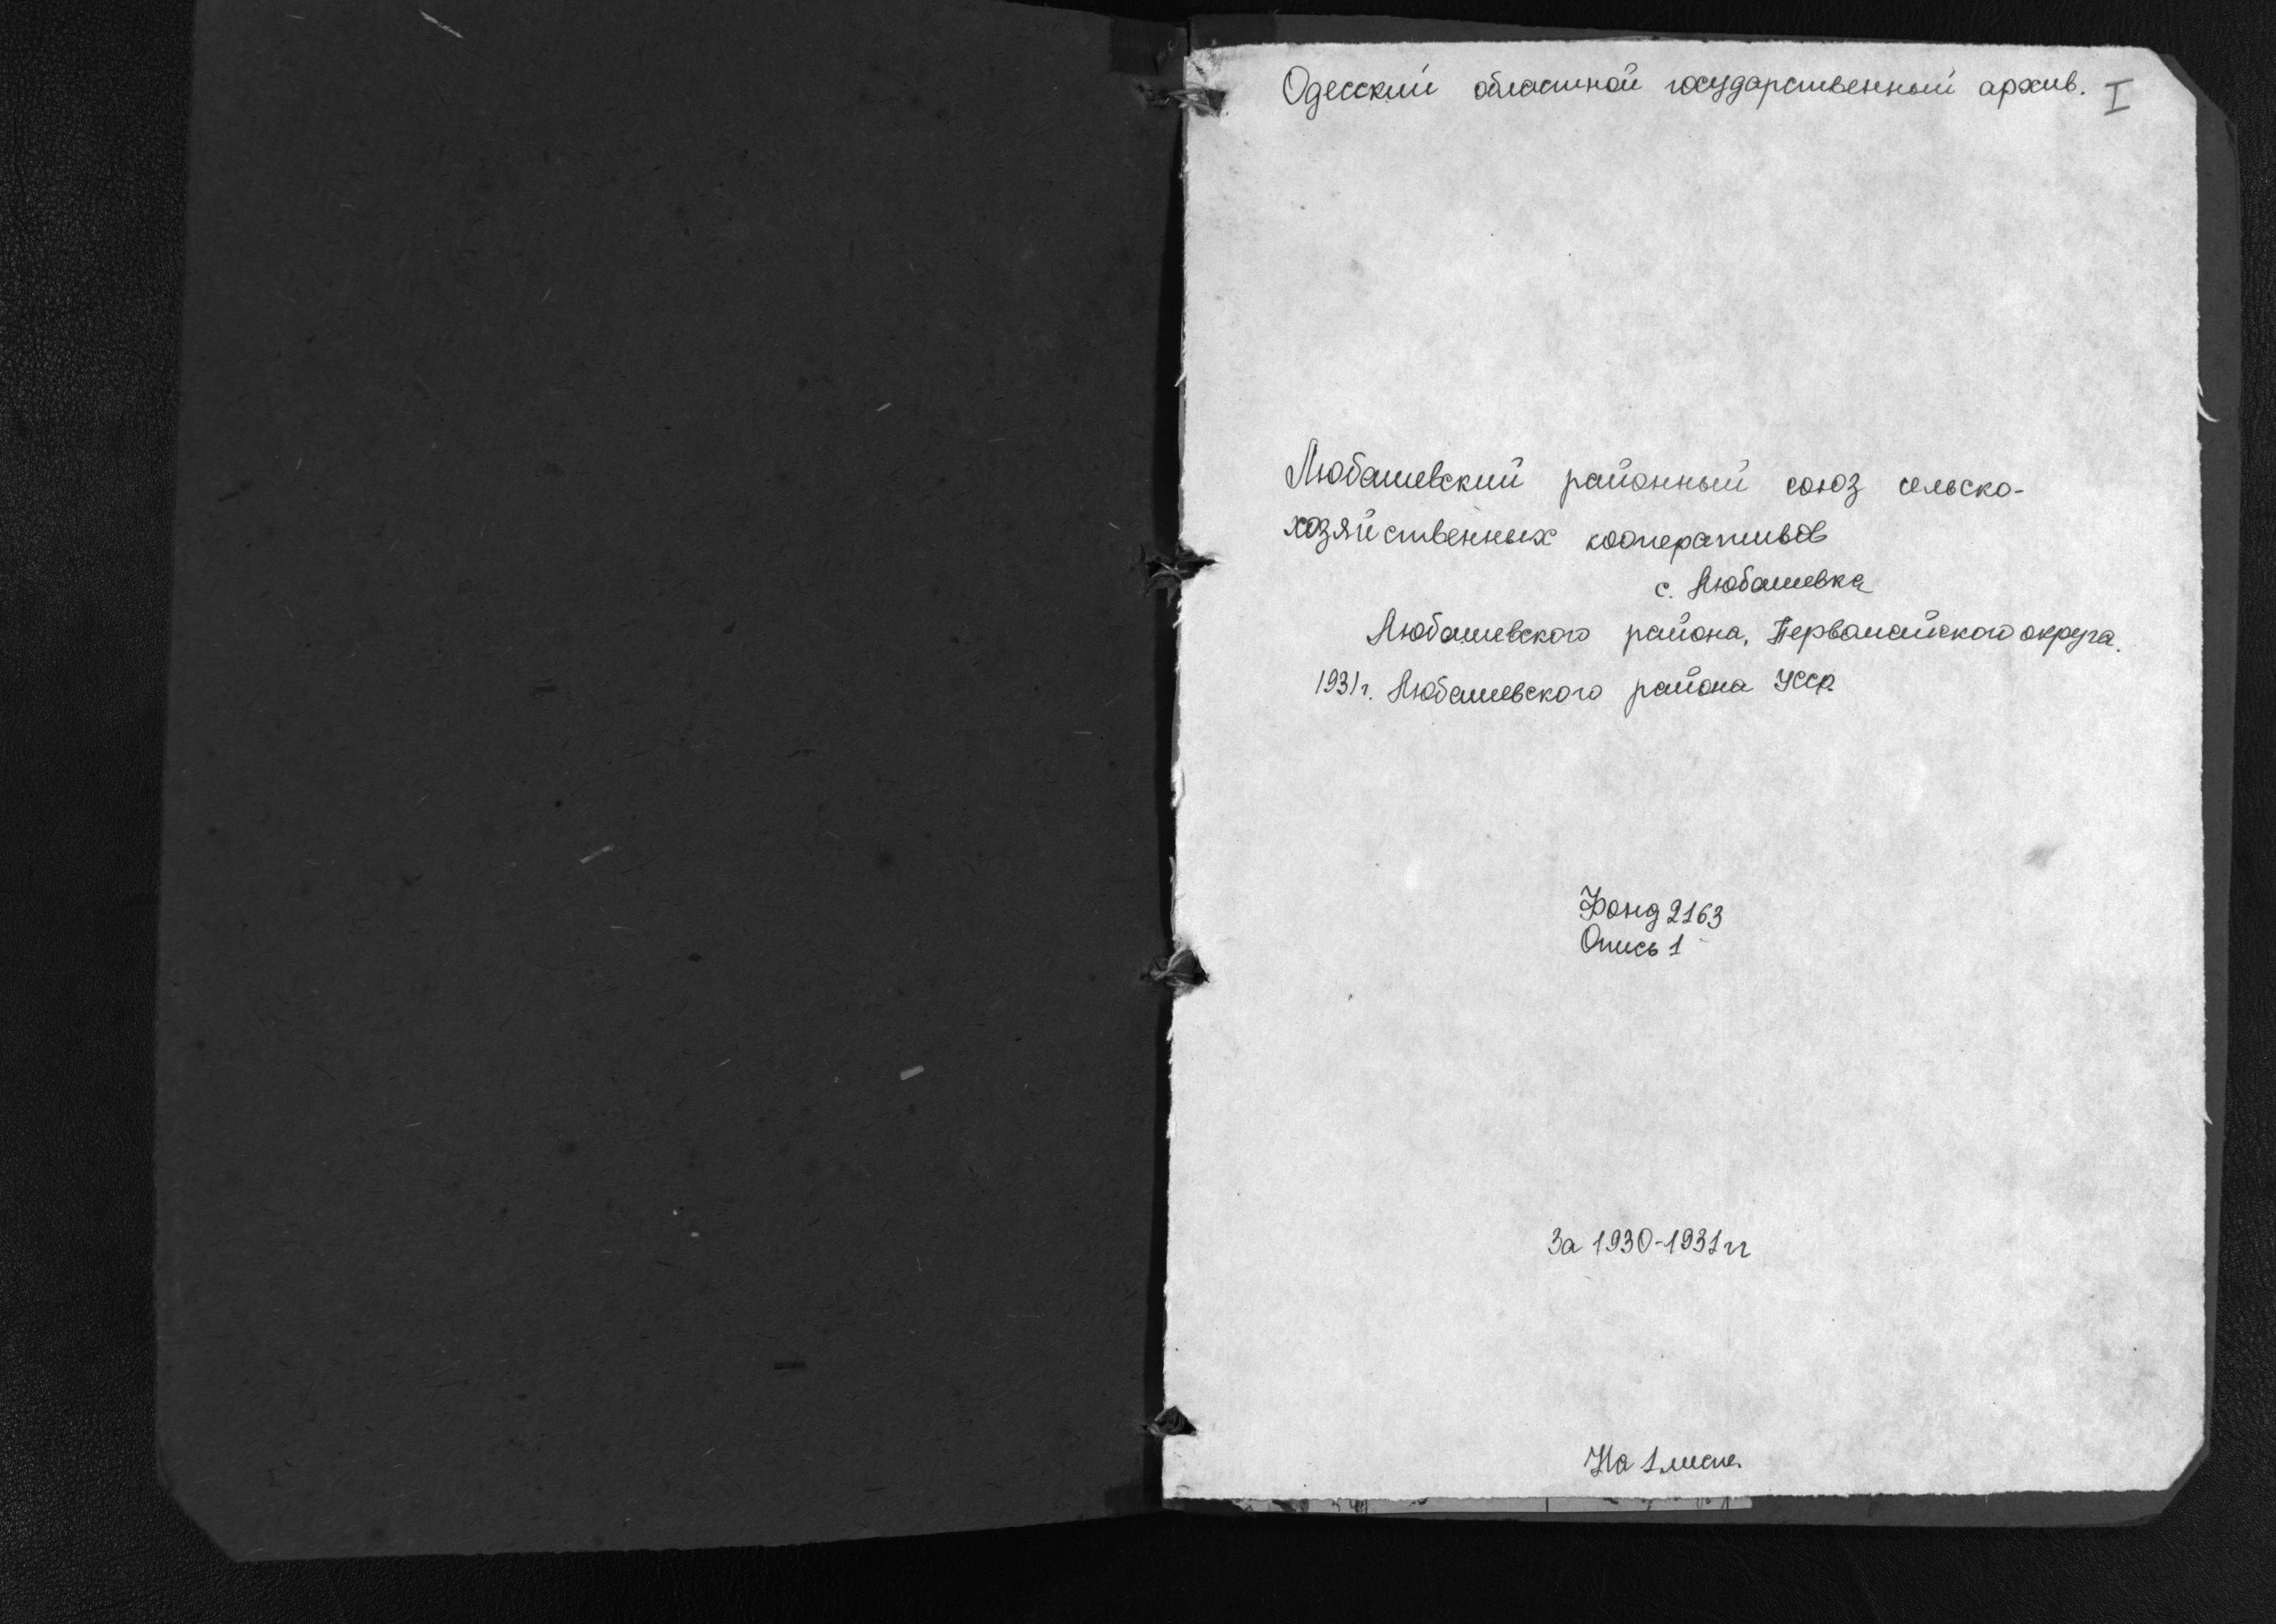 Одесский областной государственный архив. I
Любашевский районный союз сельско-
хозяйственных кооперативов
с. Любашевка
Любашевского района, Первомайского округа.
1931г. Любашевского района УССР
Фонд 2163
Опись 1
За 1930-1931гг
На 1 листе.